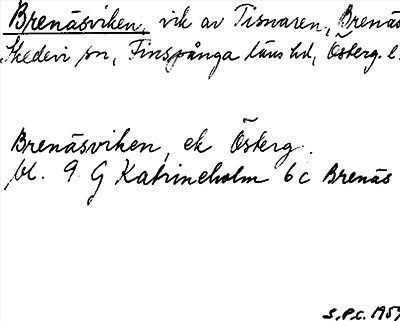 Brenäsviken, vik av Tisnaren, Brenäs
Skedevi sn, Finspånga läns hd, Österg. l.
Brenäsviken, ek Österg.
bl. 9 G Katrineholm 6 c Brenäs
S.P.C. 1959